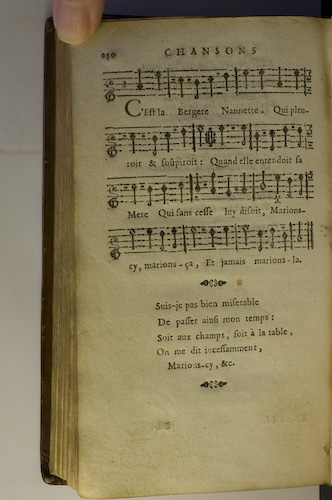 250 CHANSONS
C'Est la Bergere Nannette, Qui pleu-
roit & soûpiroit: Quand elle entendoit sa
Mere Qui sans cesse luy disoit, Marions-
cy, marions-ça, Et jamais marions-la.
Suis-je pas bien miserable
De passer ainsi mon temps:
Soit aux champs, soit à la table,
On me dit incessamment,
Marions-cy, &c.